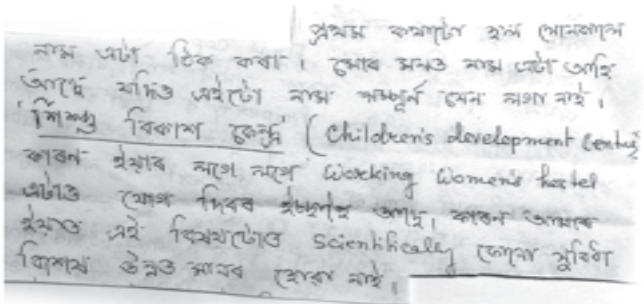 প্ৰথম কথাটো হল সোনকালে
নাম এটা ঠিক কৰা। মোৰ মনত নাম এটা আহি
আছে যদিও এইটো নাম সম্পূৰ্ন যেন লগা নাই।
'শিশু বিকাশ কেন্দ্ৰ' (Children's development Centre
কাৰন ইয়াৰ লগে লগে Working Women's hostel
এটাও যোগ দিবৰ ইচ্ছাই আছে। কাৰন আমাৰ
ইয়াত এই বিষয়টোত scientifically কোনো সুবিধা
বিশেষ উন্নত মানৰ হোৱা নাই।